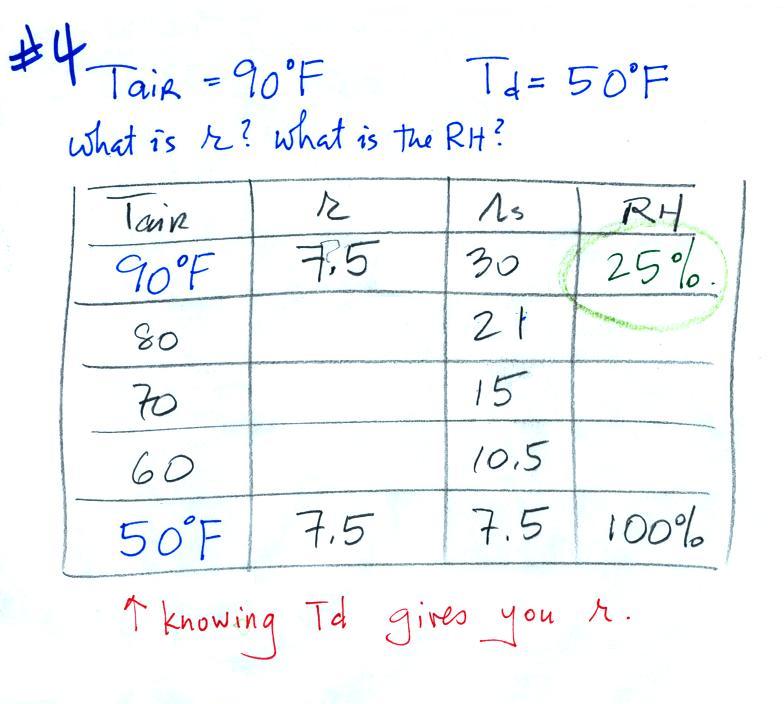 #4
Tair = 90°F Td = 50°F
what is r? what is the RH?
Tair r rs RH
90°F 7.5 30 25%.
80 21
70 15
60 10.5
50°F 7.5 7.5 100%
↑ knowing Td gives you r.